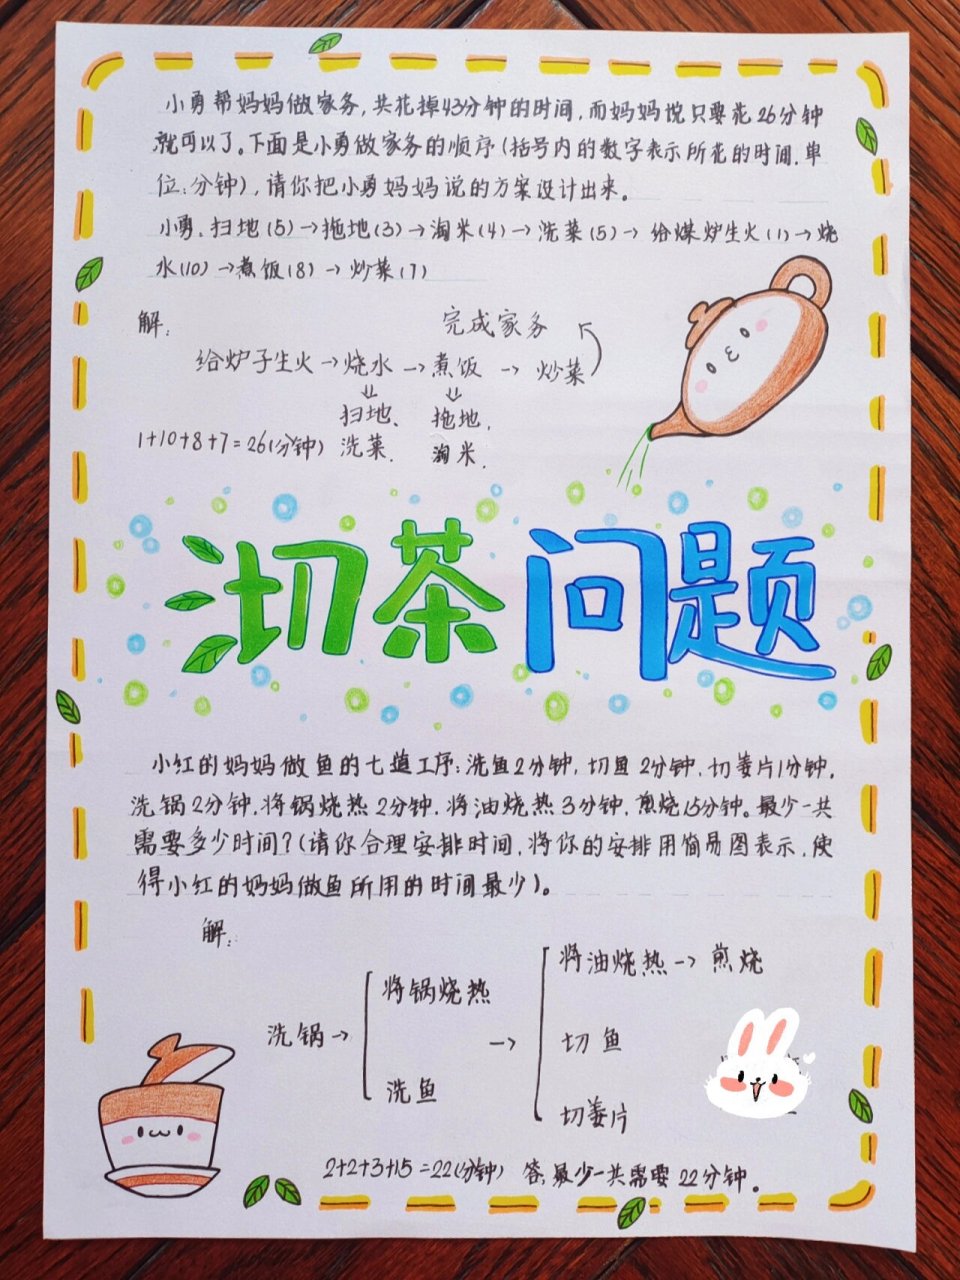 小勇帮妈妈做家务,共花掉43分钟的时间,而妈妈说只要花26分钟
就可以了。下面是小勇做家务的顺序(括号内的数字表示所花的时间.单
位:分钟),请你把小勇妈妈说的方案设计出来。
小勇、扫地(5)→拖地(3)→淘米(4)→洗菜(5)→给煤炉生火(1)→烧
水(10)→煮饭(8)→炒菜(7)
解:
完成家务
给炉子生火→烧水→煮饭→炒菜
扫地、 拖地,
1+10+8+7=26(分钟) 洗菜. 淘米.
沏茶问题
小红的妈妈做鱼的七道工序:洗鱼2分钟,切鱼2分钟,切姜片1分钟,
洗锅2分钟,将锅烧热2分钟,将油烧热3分钟,煎烧15分钟。最少一共
需要多少时间?(请你合理安排时间,将你的安排用简易图表示,使
得小红的妈妈做鱼所用的时间最少)。
解:
将油烧热→煎烧
将锅烧热
洗锅→ → 切鱼
洗鱼
切姜片
2+2+3+15=22(分钟) 答:最少一共需要22分钟。